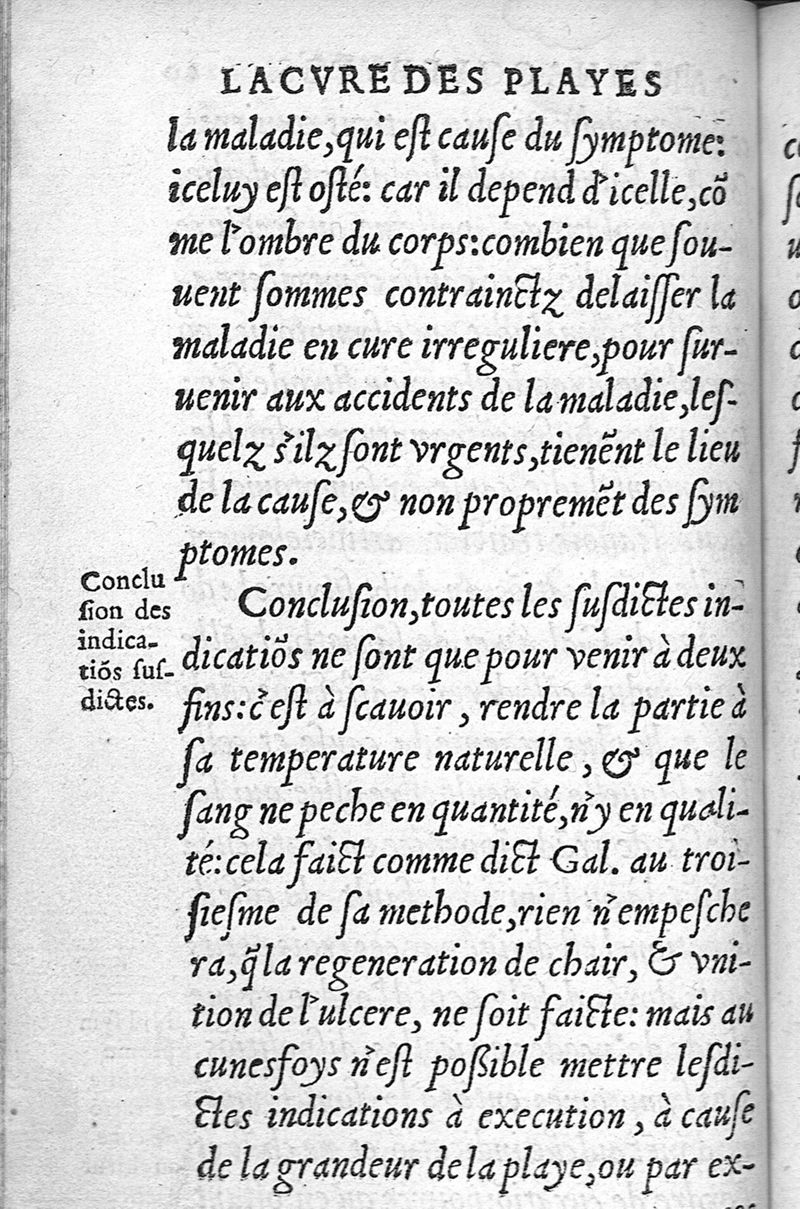 LA CVRE DES PLAYES
la maladie, qui eſt cauſe du ſymptome:
iceluy eſt oſté: car il depend d'icelle, cõ
me l'ombre du corps: combien que ſou-
uent ſommes contrainctz delaiſſer la
maladie en cure irreguliere, pour ſur-
uenir aux accidents de la maladie, leſ-
quelz s'ilz ſont vrgents, tienẽnt le lieu
de la cauſe, & non propremẽt des ſym
ptomes.
Conclu
ſion des
indica-
tiõs ſuſ-
dictes.
Concluſion, toutes les ſuſdictes in-
dicatiõs ne ſont que pour venir à deux
fins: c'eſt à ſcauoir, rendre la partie à
ſa temperature naturelle, & que le
ſang ne peche en quantité, n'y en quali-
té: cela faict comme dict Gal. au troi-
ſieſme de ſa methode, rien n'empeſche
ra, q̃ la regeneration de chair, & vni-
tion de l'ulcere, ne ſoit faicte: mais au
cunesfoys n'eſt poſsible mettre leſdi-
ctes indications à execution, à cauſe
de la grandeur de la playe, ou par ex-